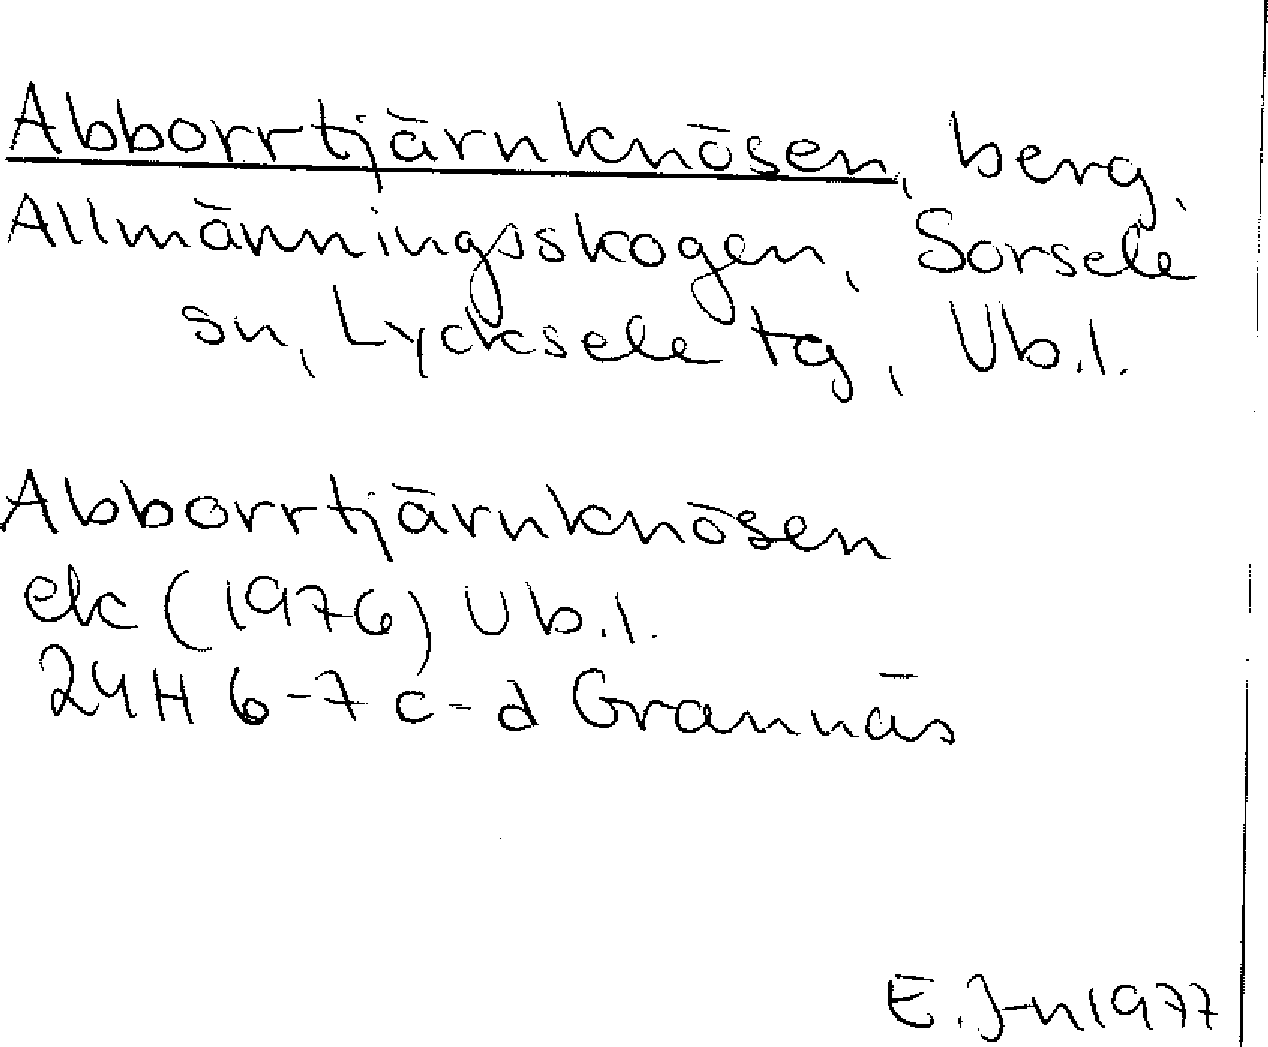 Abborrtjärnknösen, berg,
Allmänningsskogen, Sorsele
sn, Lycksele tg, Vb.l.
Abborrtjärnknösen
ek (1976) Vb.l.
24H 6-7 c-d Grannäs
E.J-n 1977